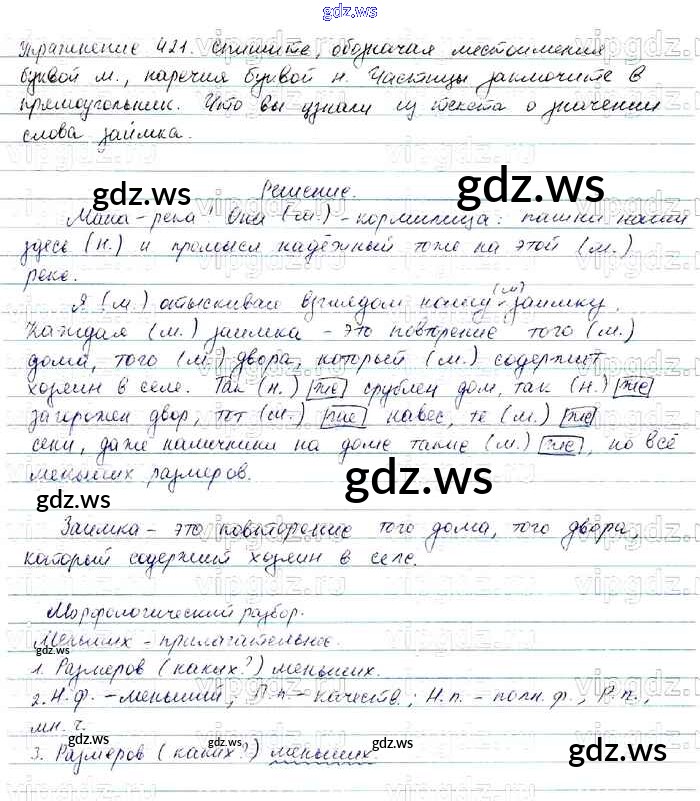 gdz.ws
Упражнение 421. Спишите, обозначая местоимения
буквой м., наречия буквой н. Частицы заключите в
прямоугольник. Что вы узнали из текста о значении
слова заимка.
gdz.ws gdz.ws
Решение.
Мана-река! Она (м.) - кормилица: пашни
здесь (н.) и промысел надёжный тоже на этой (м.)
реке.
(м)
Я (м.) отыскиваю взглядом нашу заимку.
Каждая (м.) заимка - это повторение того (м.)
дома, того (м.) двора, который (м.) содержит
хозяин в селе. Так (н.) же срублен дом, так (н.) же
загорожен двор, тот (м.) же навес, те (м.) же
сени, даже наличники на доме такие (м.) же, но всё
меньших размеров.
gdz.ws gdz.ws
Заимка - это повторение того дома, того двора,
который содержит хозяин в селе.
Морфологический разбор.
Меньших - прилагательное.
gdz.ws
1. Размеров (каких?) меньших.
2. Н.ф. - меньший; П.п - качеств.; Н.п. - полн. ф., Р.п.,
мн. ч.
3. Размеров (каких?) меньших.
gdz.ws gdz.ws gdz.ws gdz.ws